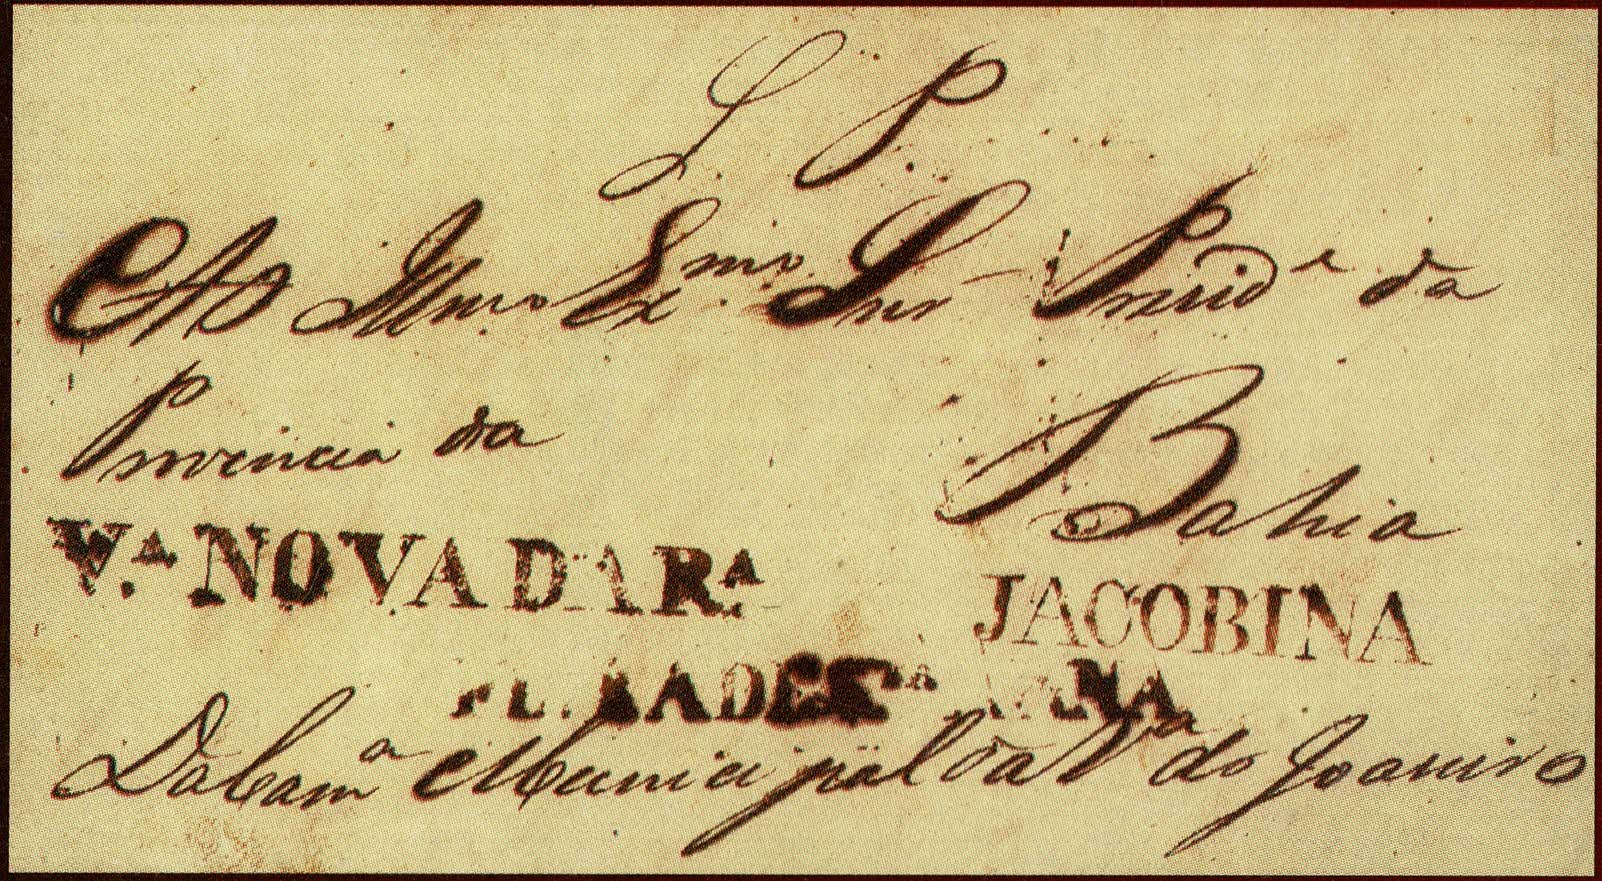 S P
Ao Illmo Exmo Snr Presid.e da
Provincia da Bahia
V.A NOVA DA R.A JACOBINA
Da Cam.a Municipal da V.a do Joaseiro